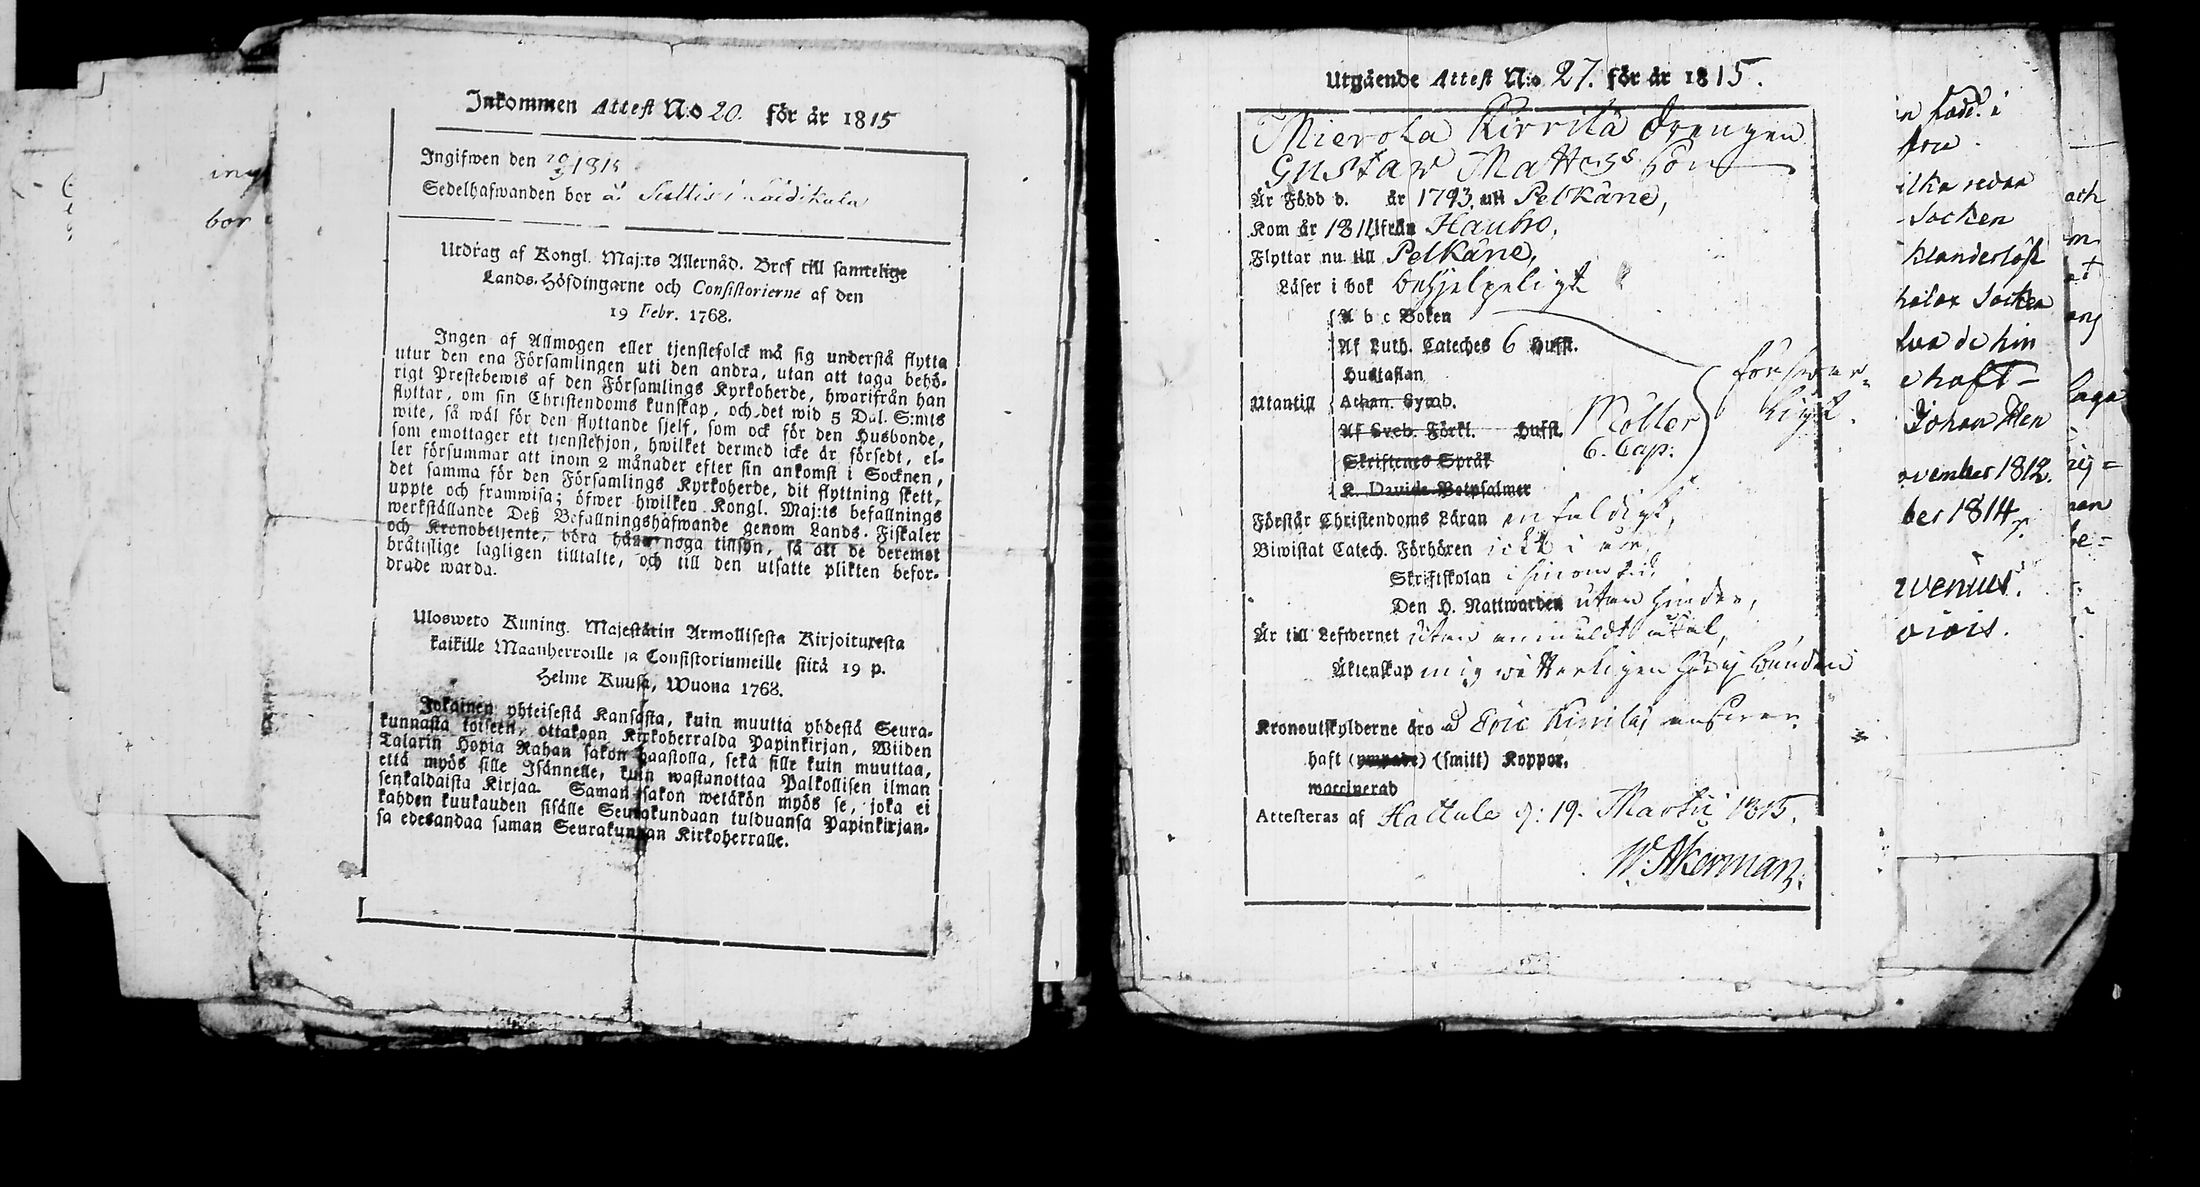 ing
bor
Inkommen Attest N:o 20. för år 1815
Ingifwen den 20/3 1815
Sedelhafwanden bor å
Utdrag af Kongl. Maj:ts Allernåd. Bref till samtelige
Lands-Höfdingarne och Consistorierne af den
19 Febr. 1768.
Ingen af Allmogen eller tjenstefolck må sig understå flytta
utur den ena Församlingen uti den andra, utan att taga behö-
rigt Prestebewis af den Församlings Kyrkoherde, hwarifrån han
flyttar, om sin Christendoms kunskap, och det wid 5 Dal. S:mts
wite, så wäl för den flyttande sjelf, som ock för den Husbonde,
som emottager ett tjenstehjon, hwilket dermed icke är försedt, el-
ler försummar att inom 2 månader efter sin ankomst i Socknen,
det samma för den Församlings Kyrkoherde, dit flyttning skett,
uppte och framwisa; öfwer hwilken Kongl. Maj:ts befallnings
werkställande Deß Befallningshafwande genom Lands-Fiskaler
och Kronobetjente, böra hålla noga tillsyn, så att de deremot
bråtislige lagligen tilltalte, och till den utsatte plikten befor-
drade warda.
Ulosweto Kuning. Majestätin Armollisesta Kirjoituxesta
kaikille Maanherroille ja Consistoriumeille siitä 19 p.
Helme Kuusa, Wuona 1768.
Jokainen yhteisestä Kansasta, kuin muutta yhdestä Seura-
kunnasta toiseen, ottakoon Kirkoherralda Papinkirjan, Wiiden
Talarin Hopia Rahan sakon haastolla, sekä sille kuin muuttaa,
että myös sille Isännelle, kuin wastanottaa Palkollisen ilman
senkaldaista Kirjaa. Saman sakon wetäkön myös se, joka ei
kahden kuukauden sisälle Seurakundaan tulduansa Papinkirjan-
sa edesandaa saman Seurakunnan Kirkoherralle.
Utgående Attest N:o 27. för år 1815.
Mierola Kirrilä Drengen
Gustav Matts son
Är Född d. år 1793. uti Pelkäne,
Kom år 1814 från Hauho,
Flyttar nu till Pelkäne,
Läser i bok behjelpeligt
A b c Boken
Af Luth. Cateches 6 Hufst.
Hustaflan
Utantill Athan. Symb.
Af Sveb. Förkl. Hufst. Möller
Skriftenes Språk 6. Cap:
K. Davids Botpsalmer
förswar-
ligt.
Förstår Christendoms Läran enfaldigt,
Biwistat Catech. Förhören
Skriftskolan i sinom tid,
Den H. Nattwarden utan hinder,
Är till Lefwernet utan anmäldt åtal,
Äktenskap mig wetterligen ej bunden
Kronoutskylderne äro å Eric Kirriläs
haft (ympade) (smitt) Koppor.
waccinerad
Attesteras af Hattula d: 19. Martii 1815.
W. Åkerman.
Socken
klanderlöst
Socken
Johan
ovember 1812.
ber 1814